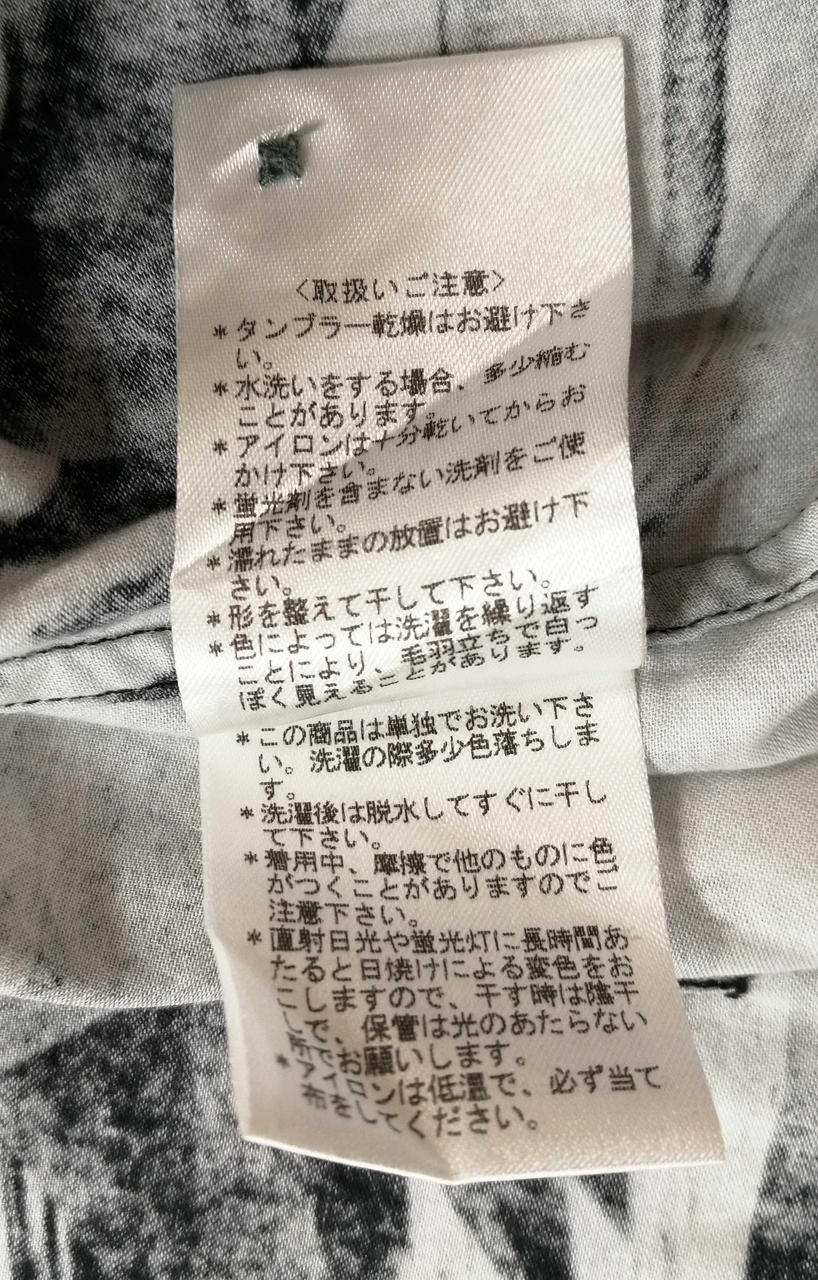 〈取扱いご注意〉
*タンブラー乾燥はお避け下さ
い。
*水洗いをする場合、多少縮む
ことがあります。
*アイロンは十分乾いてからお
かけ下さい。
*蛍光剤を含まない洗剤をご使
用下さい。
*濡れたままの放置はお避け下
さい。
*形を整えて干して下さい。
*色によっては洗濯を繰り返す
ことにより、毛羽立ちで白っ
ぽく見えることがあります。
*この商品は単独でお洗い下さ
い。洗濯の際多少色落ちしま
す。
*洗濯後は脱水してすぐに干し
て下さい。
*着用中、摩擦で他のものに色
がつくことがありますのでご
注意下さい。
*直射日光や蛍光灯に長時間あ
たると日焼けによる変色をお
こしますので、干す時は陰干
しで、保管は光のあたらない
所でお願いします。
*アイロンは低温で、必ず当て
布をしてください。